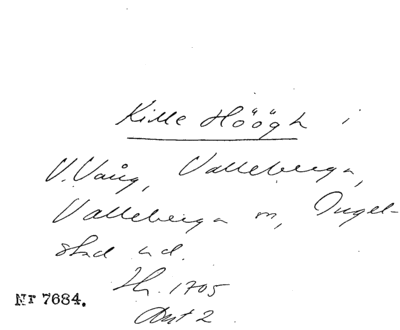 Kille Höögh i
V. Vång, Valleberga,
Valleberga sn, Ingel-
stad hd.
Jb. 1705
Avt 2
Nr 7684.